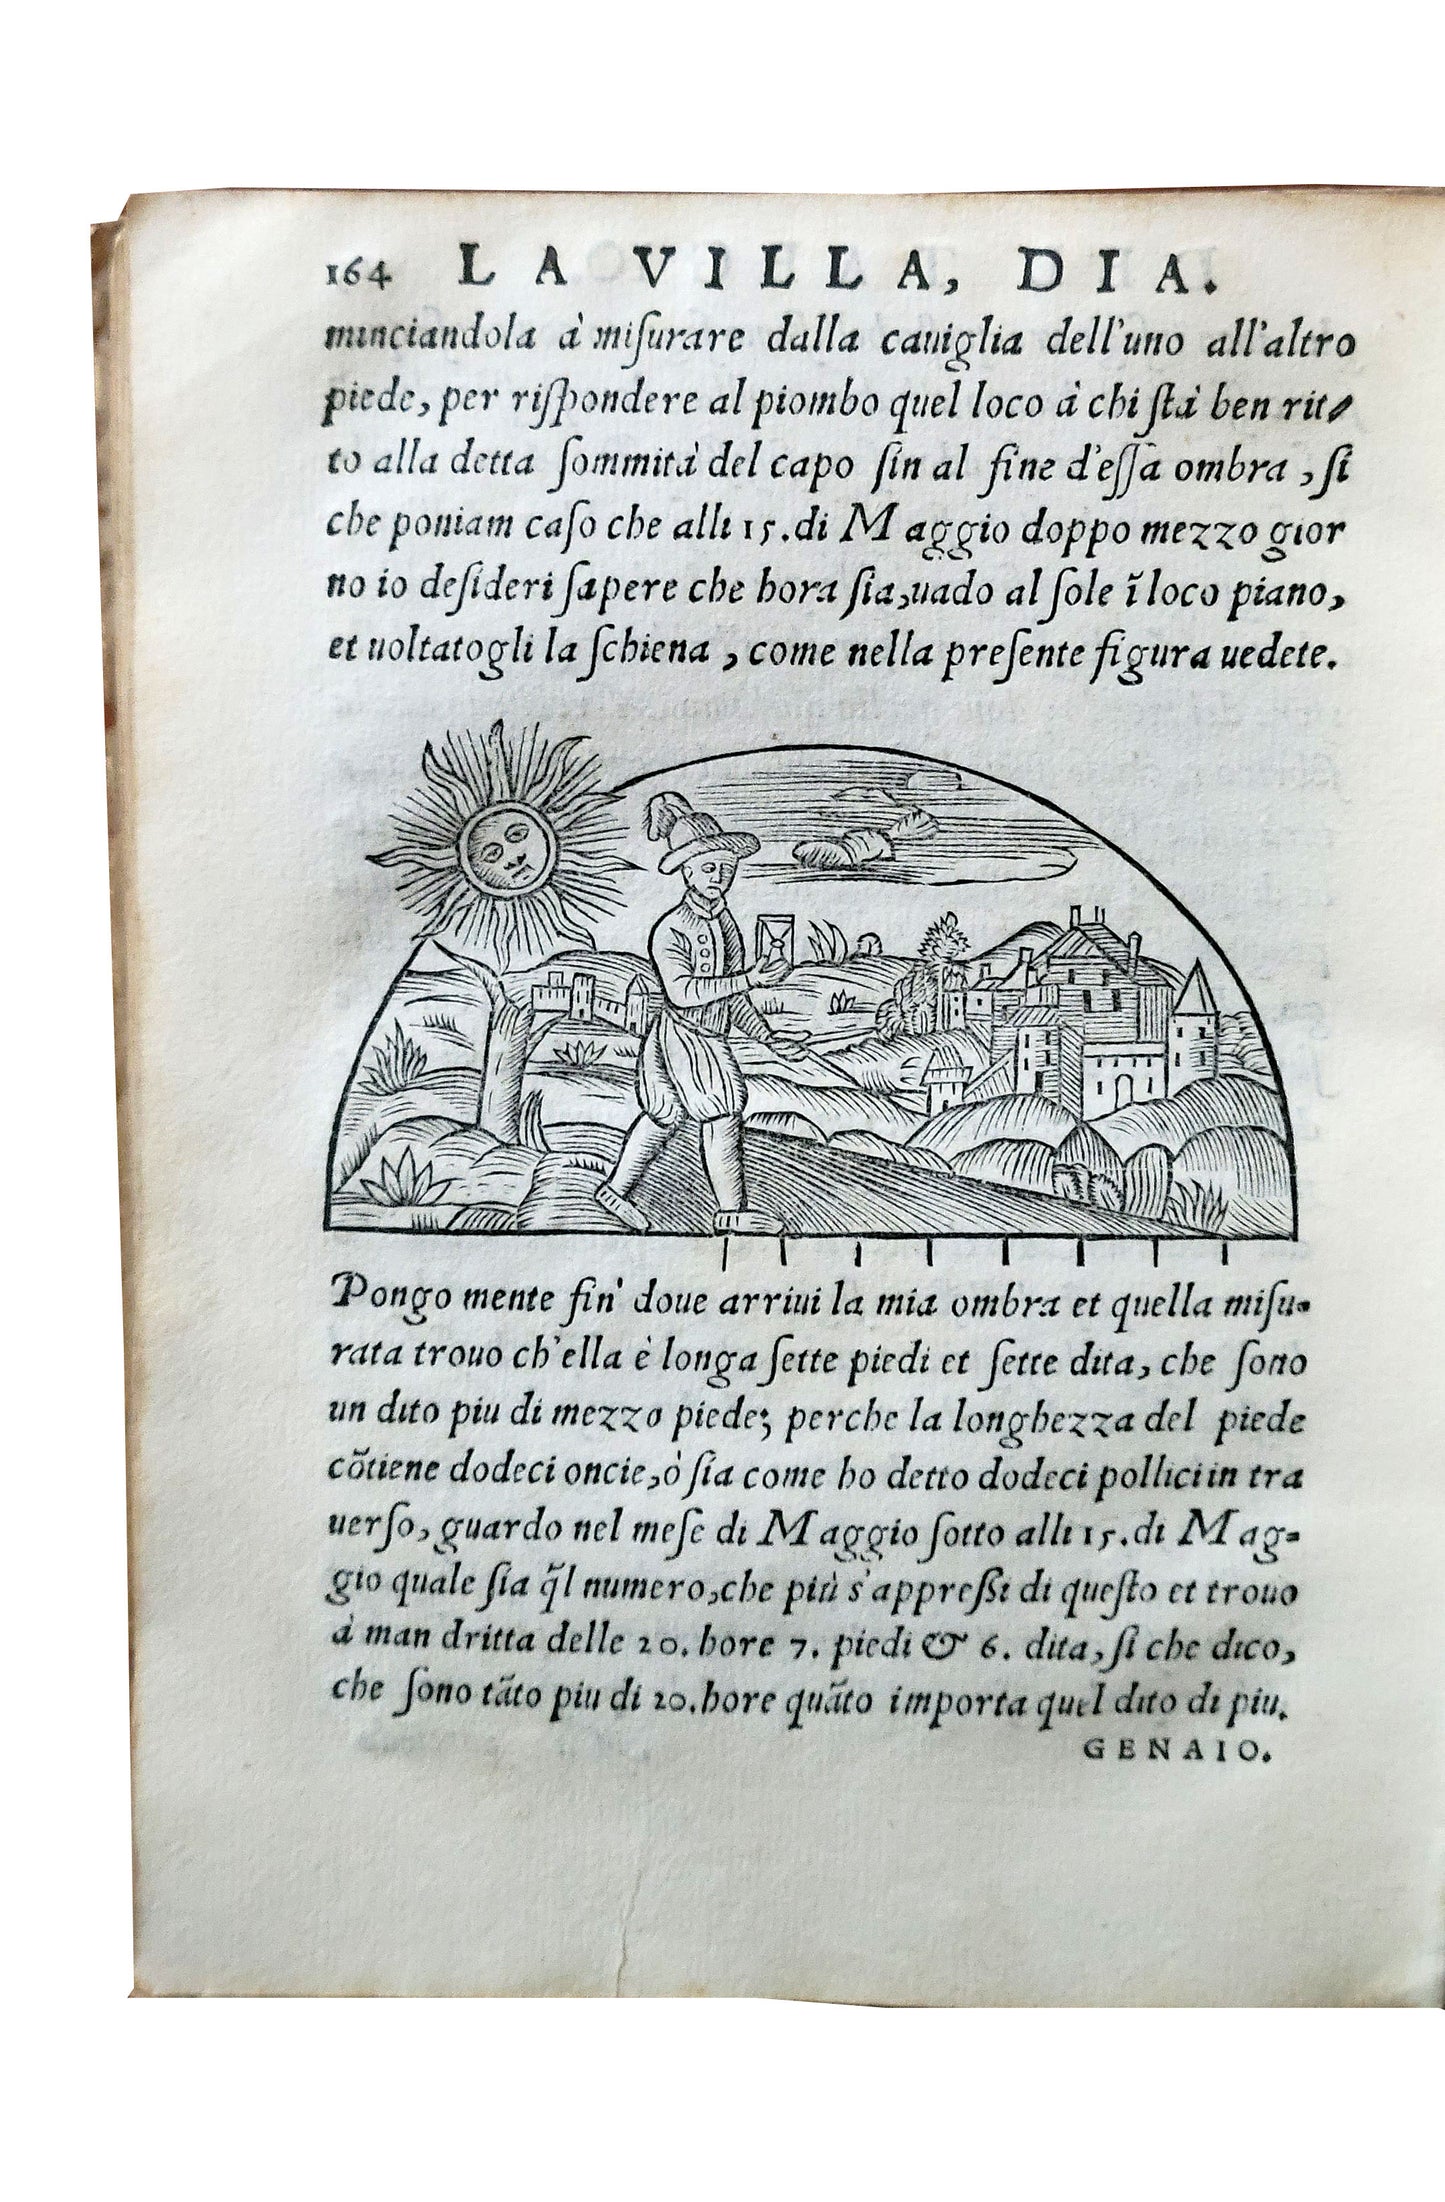 164 LA VILLA, DIA.
minciandola à miſurare dalla cauiglia dell'uno all'altro
piede, per riſpondere al piombo quel loco à chi ſtà ben rit-
to alla detta ſommità del capo ſin al fine d'eſſa ombra, ſi
che poniam caſo che alli 15. di Maggio doppo mezzo gior
no io deſideri ſapere che hora ſia, uado al ſole ĩ loco piano,
et uoltatogli la ſchiena, come nella preſente figura uedete.
Pongo mente fin' doue arriui la mia ombra et quella miſu-
rata trouo ch'ella è longa ſette piedi et ſette dita, che ſono
un dito piu di mezzo piede; perche la longhezza del piede
cõtiene dodeci oncie, ò ſia come ho detto dodeci pollici in tra
uerſo, guardo nel meſe di Maggio ſotto alli 15. di Mag-
gio quale ſia q̃l numero, che più s'appreſſi di queſto et trouo
à man dritta delle 20. hore 7. piedi & 6. dita, ſi che dico,
che ſono tãto piu di 20. hore quãto importa quel dito di piu.
GENAIO.